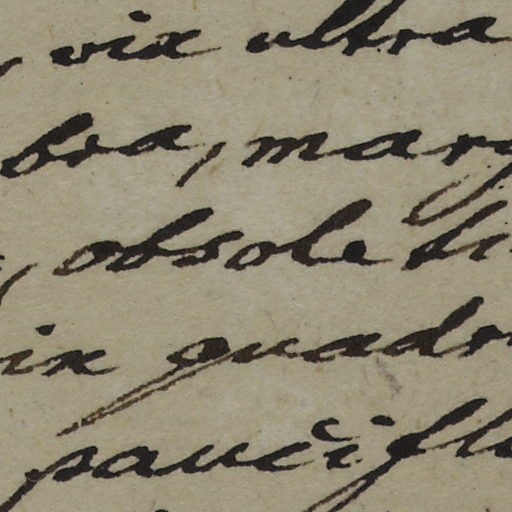 , vix ultra
bra, marg
, obsole ti
ix quadr
paucifl